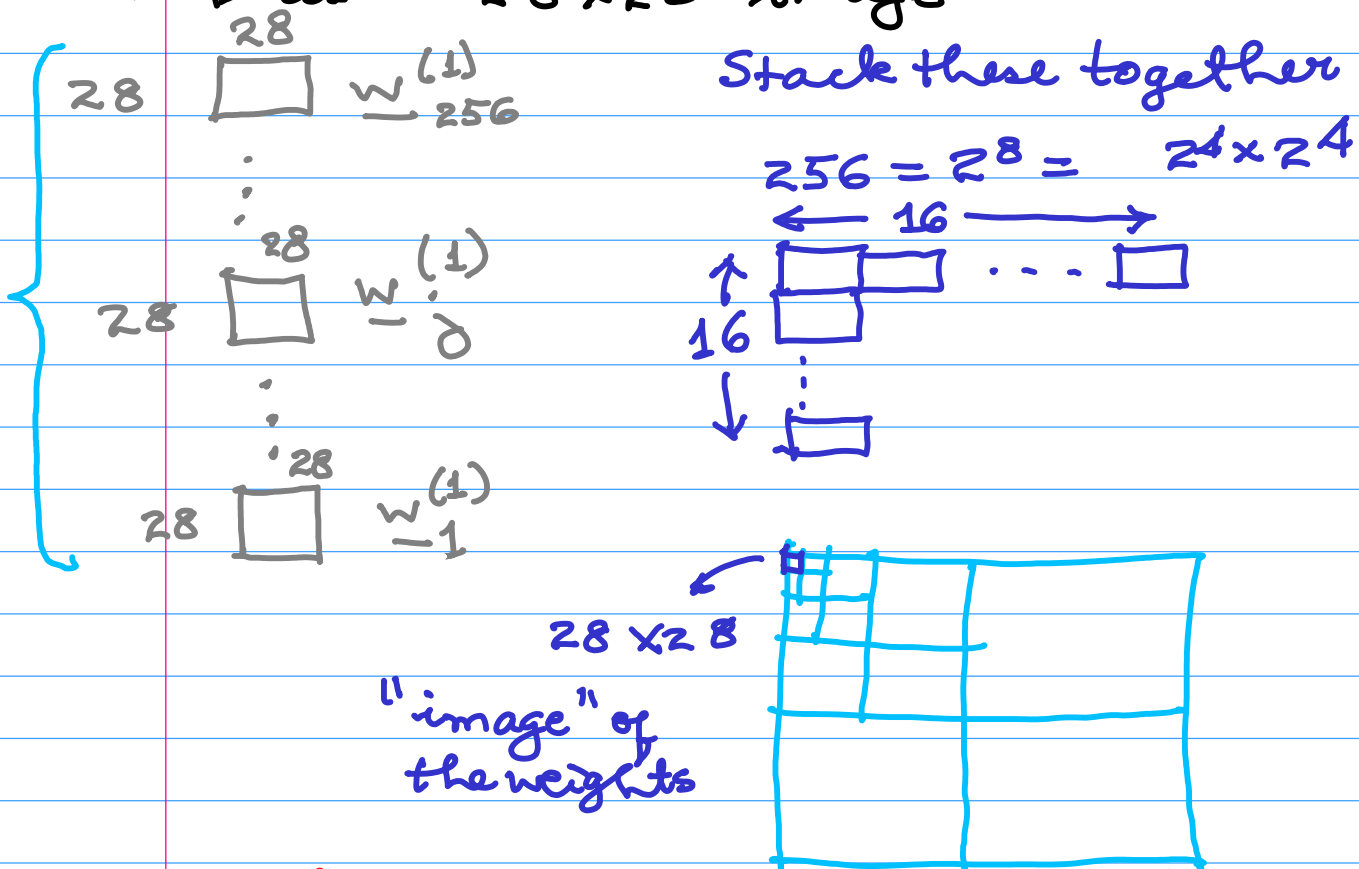 28×28 image
28
28 w^(1) 256
28
28 w^(1) j
28
28 w^(1) 1
Stack these together
256 = 2^8 = 2^4 × 2^4
16
16
28 × 28
"image" of
the weights